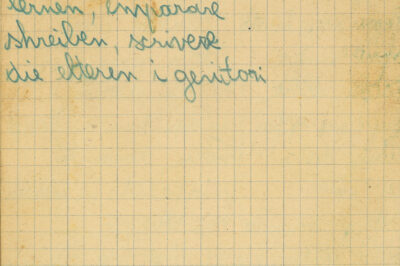 lernen, imparare
shreiben, scrivere
die elteren i genitori